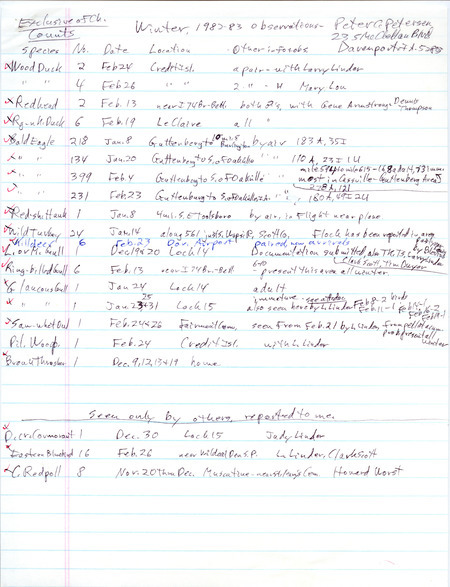 Exclusive of Ch. Counts
Winter, 1982-83 Observations - Peter C. Petersen
235 McClellan Blvd
Davenport, Ia. 52803
Species No. Date Location Other info + obs
Wood Duck 2 Feb 24 Credit Isl. a pair - with Larry Linder
" " 4 Feb 26 " " 2 " " Mary Lou
Redhead 2 Feb. 13 near I 74 Br-Bett. both ♂s, with Gene Armstrong, Dennis Thompson
Rg-nk Duck 6 Feb. 19 LeClaire all ♂
Bald Eagle 218 Jan. 8 Guttenberg to 10 mi. S Burlington by air 183 A, 35 I
" " 134 Jan. 20 Guttenberg to S. of Oakville " " 110 A, 23 I 1 U
" " 399 Feb. 4 Guttenberg to S. of Oakville
most in Cassville-Guttenberg Area
278 A, 121
" 231 Feb. 23 Guttenberg to S. of Oakville " "
Red-sh Hawk 1 Jan. 8 4 mi. S. Toolsboro by air, in flight near plane
Wild Turkey 24 Jan. 14 along 561 Scott Co. Flock has been reported in area
Killdeer 6 Feb. 23 Dav. Airport paired, new arrivals
Gull 1 Dec 19 & 20 Lock 14 Documentation submitted, also
Ring-billed Gull 6 Feb. 13 near I 74 Br-Bett - present this area all winter.
Glaucous Gull 1 Jan 24 Lock 14 adult
" " 1 Jan 25 & 31 Lock 15 immature also seen here by L. Linder Feb 8-2 birds
Saw-whet Owl 1 Feb. 24 & 26 Fairmount Cem. seen from Feb. 21 by L. Linder from pellets prob present all winter
Pil. Woodp. 1 Feb. 24 Credit Isl. with L. Linder
Brown Thrasher 1 Dec. 9, 12, 13 & 19 home
Seen only by others, reported to me.
D. cr. Cormorant 1 Dec. 30 Lock 15 Judy Linder
Eastern Bluebird 16 Feb. 26 near Wildcat Den S.P. L. Linder, Clark Scott
C. Redpoll 8 Nov. 20 thru Dec. Muscatine - near St. Mary's Cem. Howard Worst